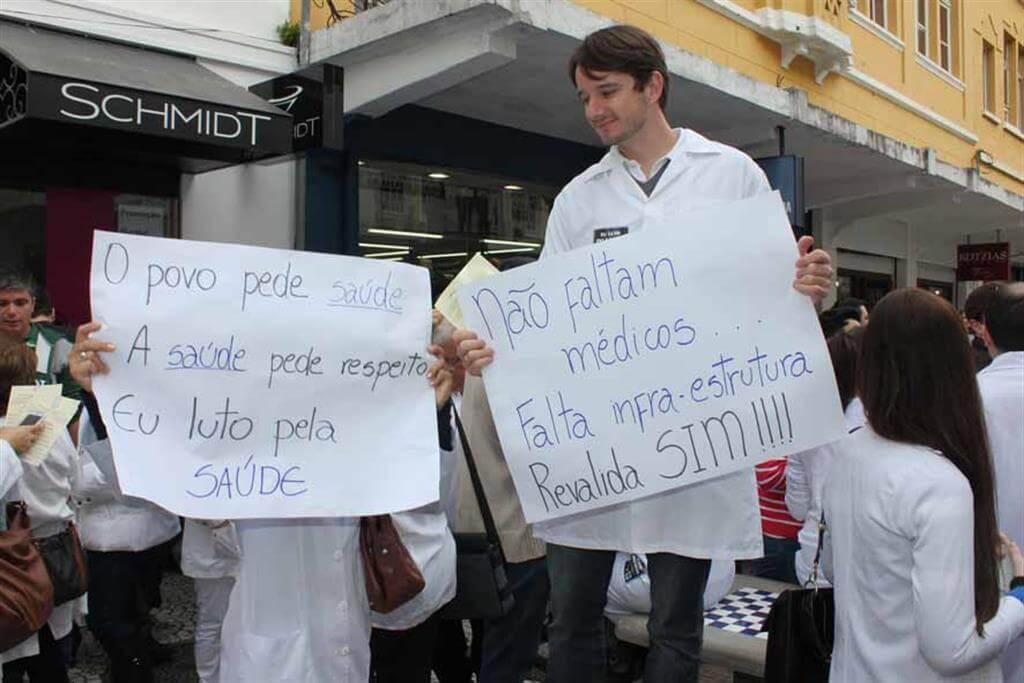 SCHMIDT
DT
O povo pede saúde
A saúde pede respeito
Eu luto pela
SAÚDE
Não faltam
médicos...
Falta infra-estrutura
Revalida SIM!!!!